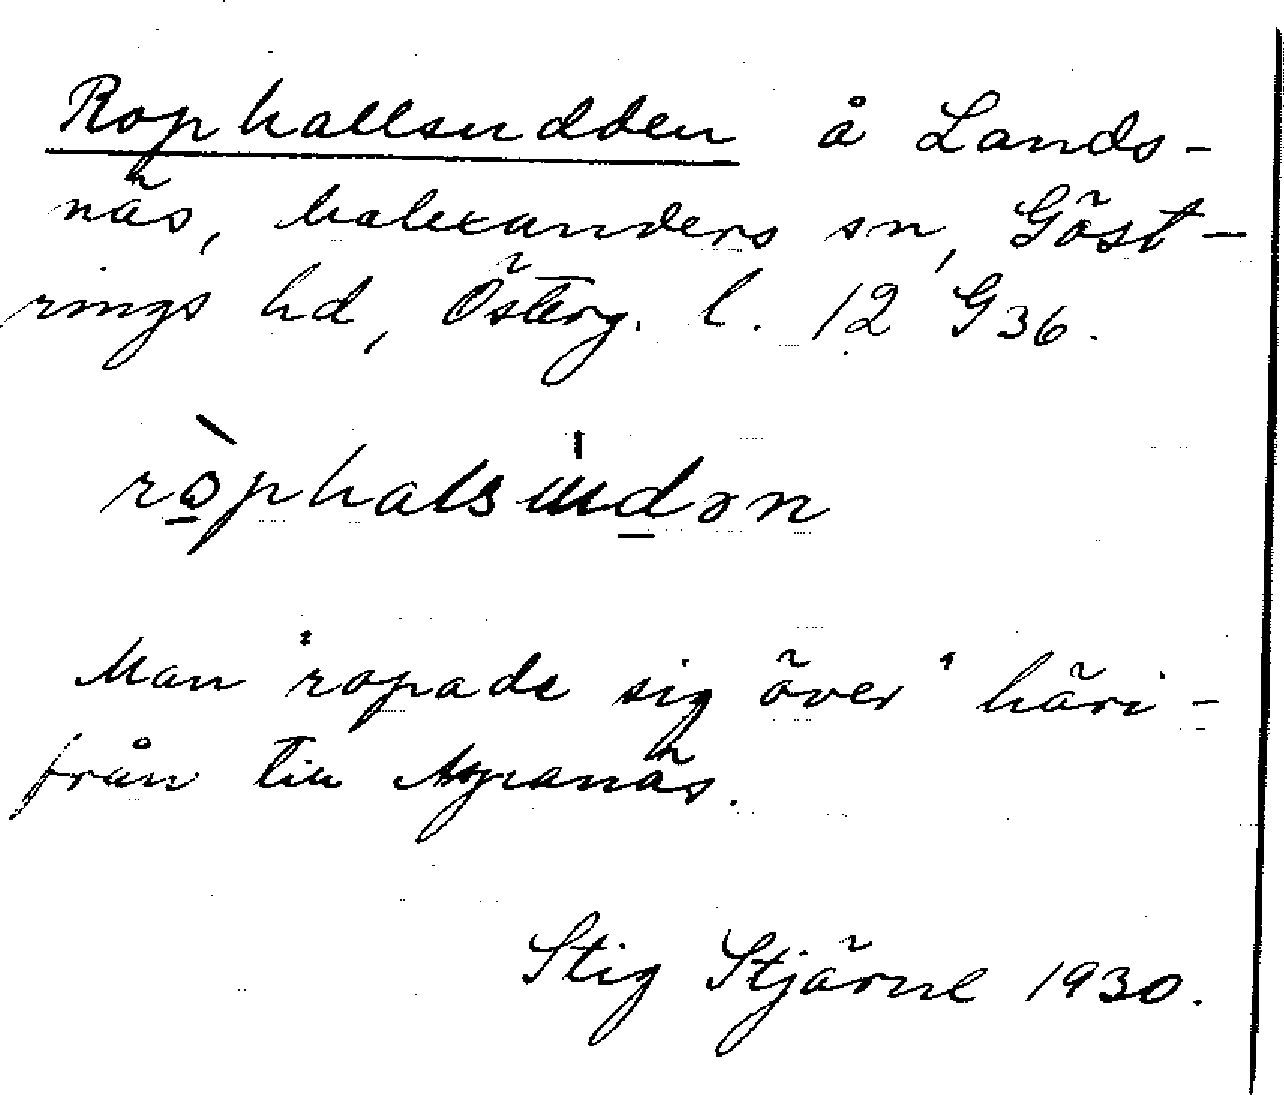 Rophallsudden å Lands-
näs, Malexanders sn, Göst-
rings hd, Österg. l. 12 G 36.
ròphalsudən
Man "ropade sig över" häri-
från till Aspanäs.
Stig Stjärne 1930.